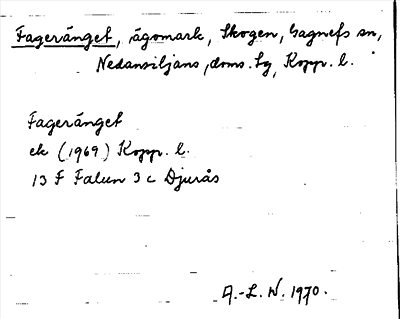 Fageränget, ägomark, Skogen, Gagnefs sn,
Nedansiljans doms. tg, Kopp. l.
Fageränget
ek (1969) Kopp. l.
13 F Falun 3 c Djurås
A.-L. N. 1970.